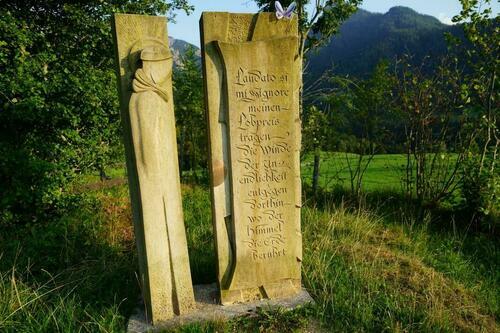 Laudato si
mi Signore
meinen
Lobpreis
tragen
Die Winde
Der Un-
endlichkeit
entgegen
Dorthin
wo Der
Himmel
die Erde
Berührt